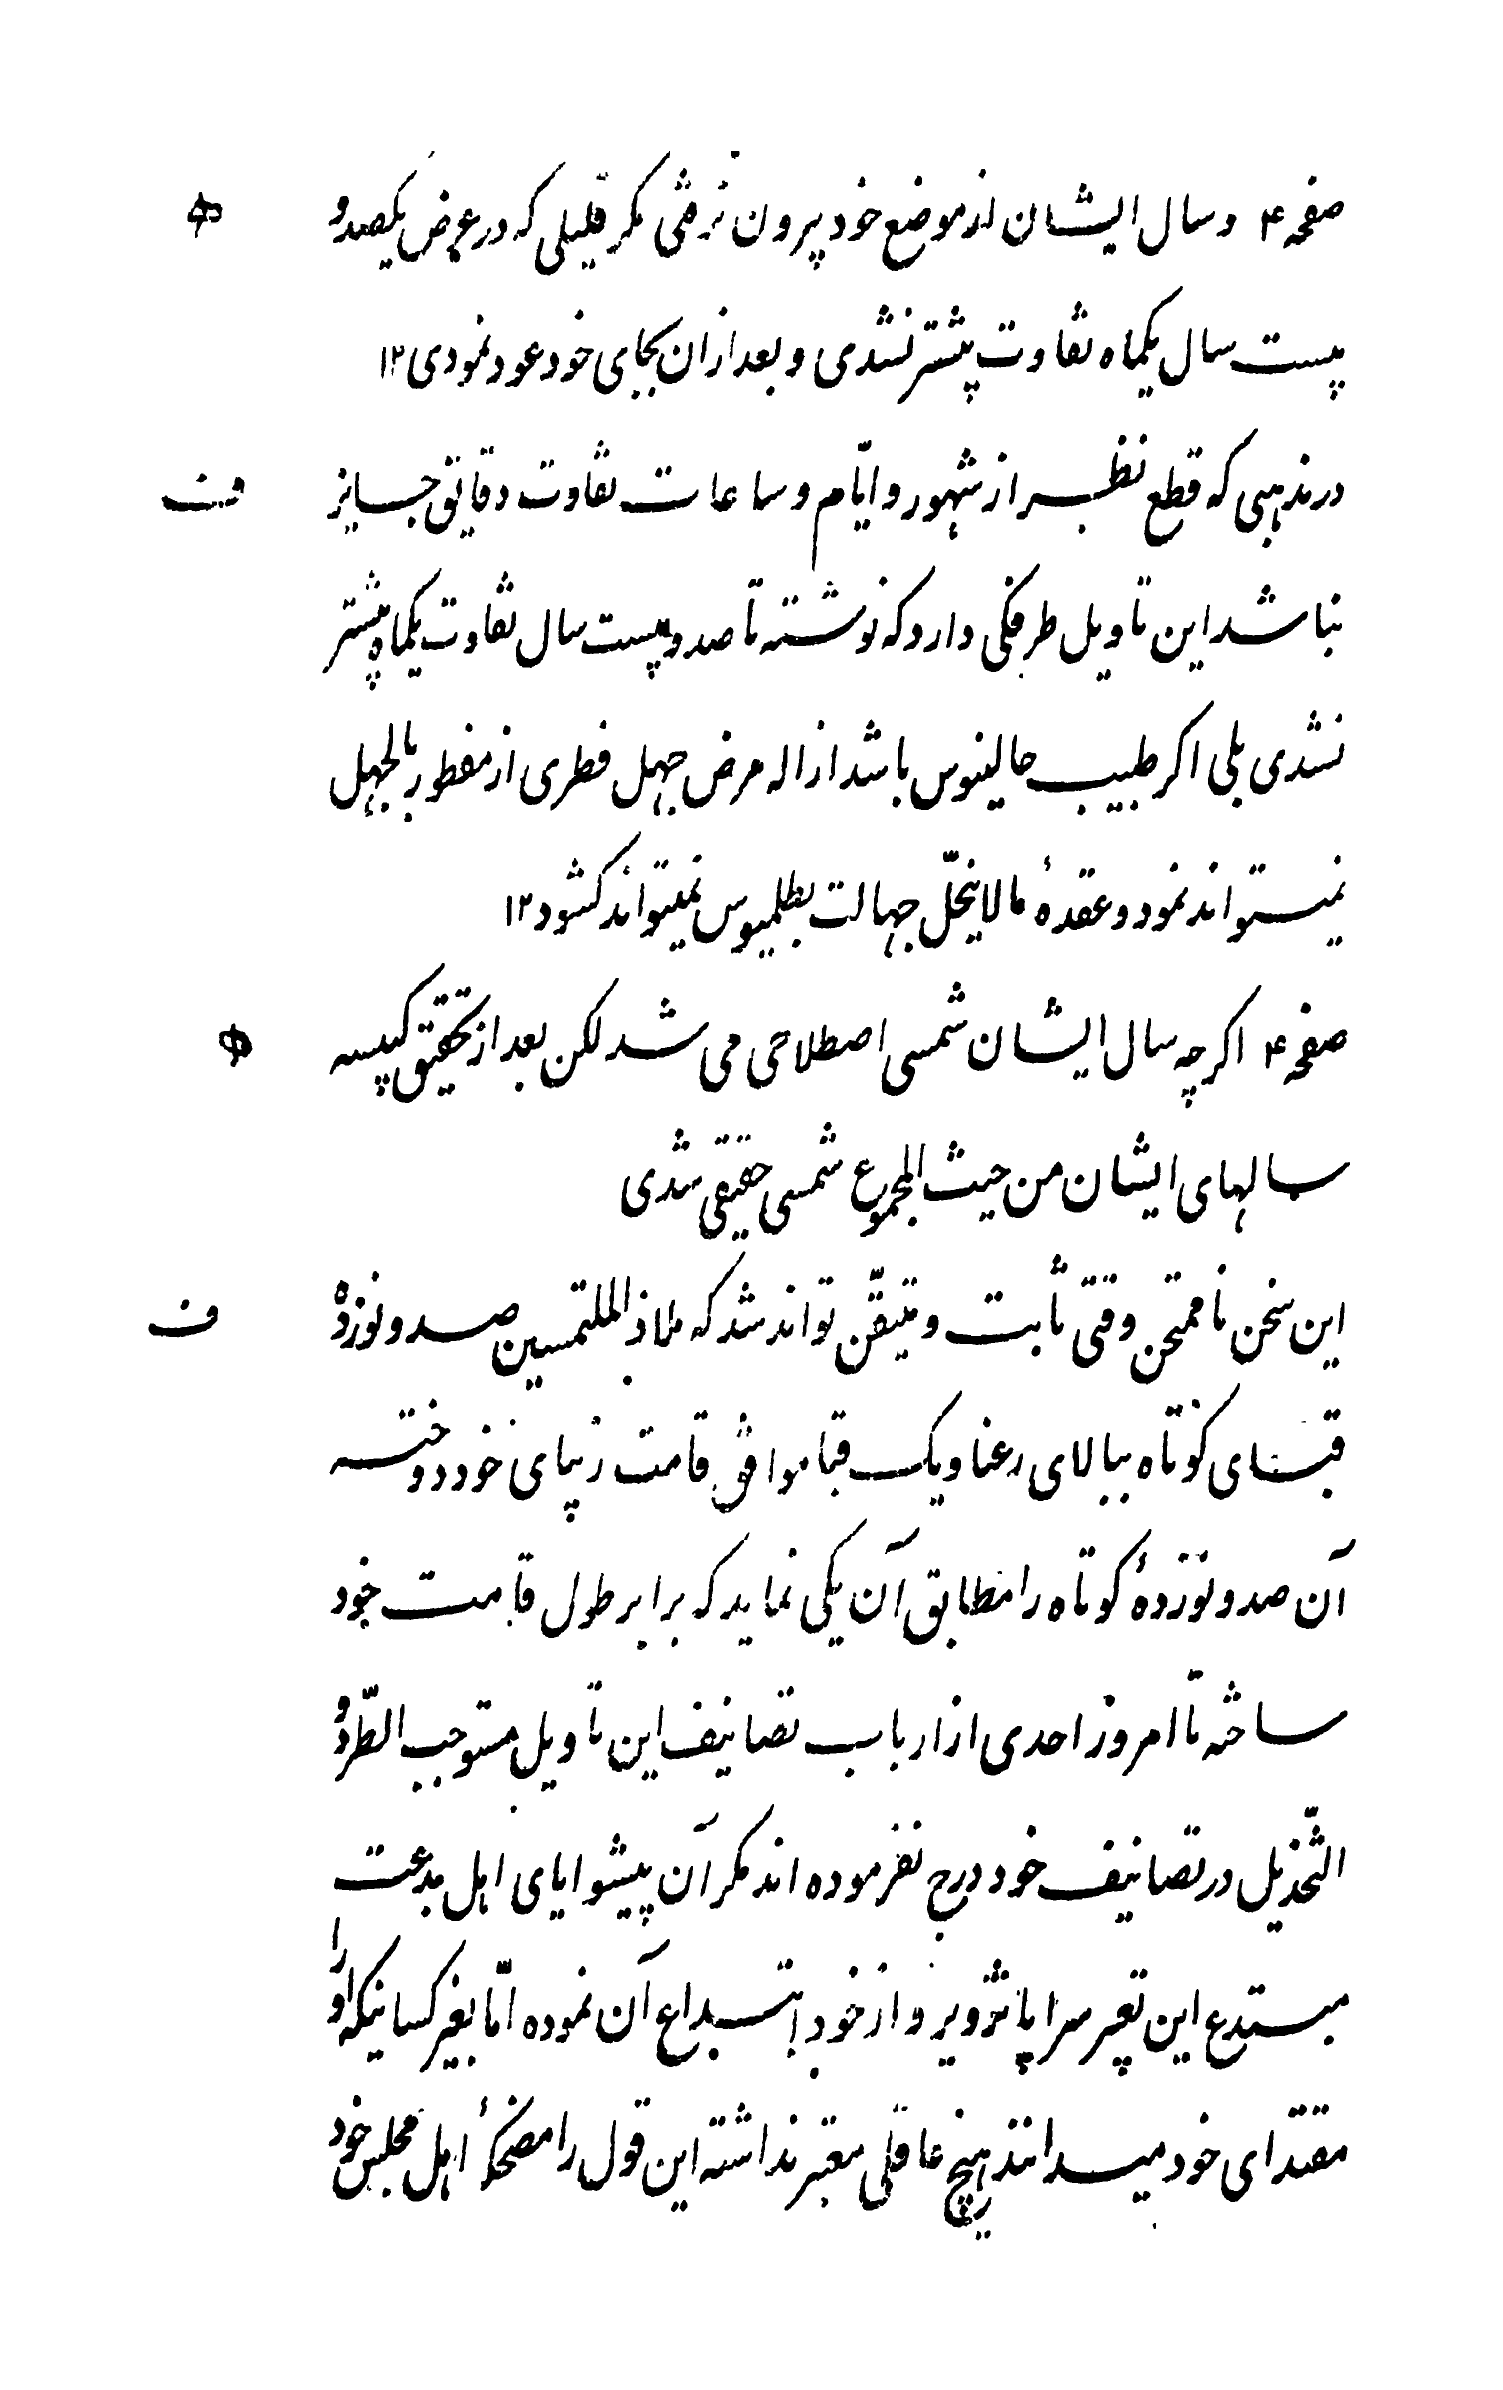 صفحه ۴ و سال ایشان از موضع خود بیرون نرفتی مکر قلیلی که در عرض یکصد و
بیست سال یکماه تفاوت بیشتر نشدی و بعد ازان بجای خود عود نمودی ۱۲
در مذهبی که قطع نظر از شهور و ایّام و ساعات تفاوت دقایق جایز ف
نباشد این تاویل طرفکی دارد که نوشته تا صد و بیست سال تفاوت یکماه بیشتر
نشدی بلی اکر طبیب جالینوس باشد ازاله مرض جهل فطری از مفطور بالجهل
نمیتواند نمود و عقدهٔ مالاینحلّ جهالت بطلمیوس نمیتواند کشود ۱۲
صفحه ۴ اکرچه سال ایشان شمسی اصطلاحی می شد لکن بعد از تحقیق کبیسه
سالهای ایشان من حیث المجموع شمسی حقیقی شدی
این سخن ناممتحن وقتی ثابت و متیقّن تواند شد که ملاذ الملتمسین صد و نوزده ف
قبای کوتاه ببالای رعنا و یک قبا موافق قامت زیبای خود دوخته
آن صد و نوزدهٔ کوتاه را مطابق آن یکی نماید که برابر طول قامت خود
ساخته تا امروز احدی از ارباب تصانیف این تاویل مستوجب الطّرد و
التّخذیل در تصانیف خود درج نفرموده اند مکر آن پیشوایای اهل بدعت
مبتدع این تعبیر سراپا تزویر و از خود ابتداع آن نموده امّا بغیر کسانیکه او را
مقتدای خود میدانند هیچ عاقلی معتبر نداشته این قول را مضحکهٔ اهل مجلس خود